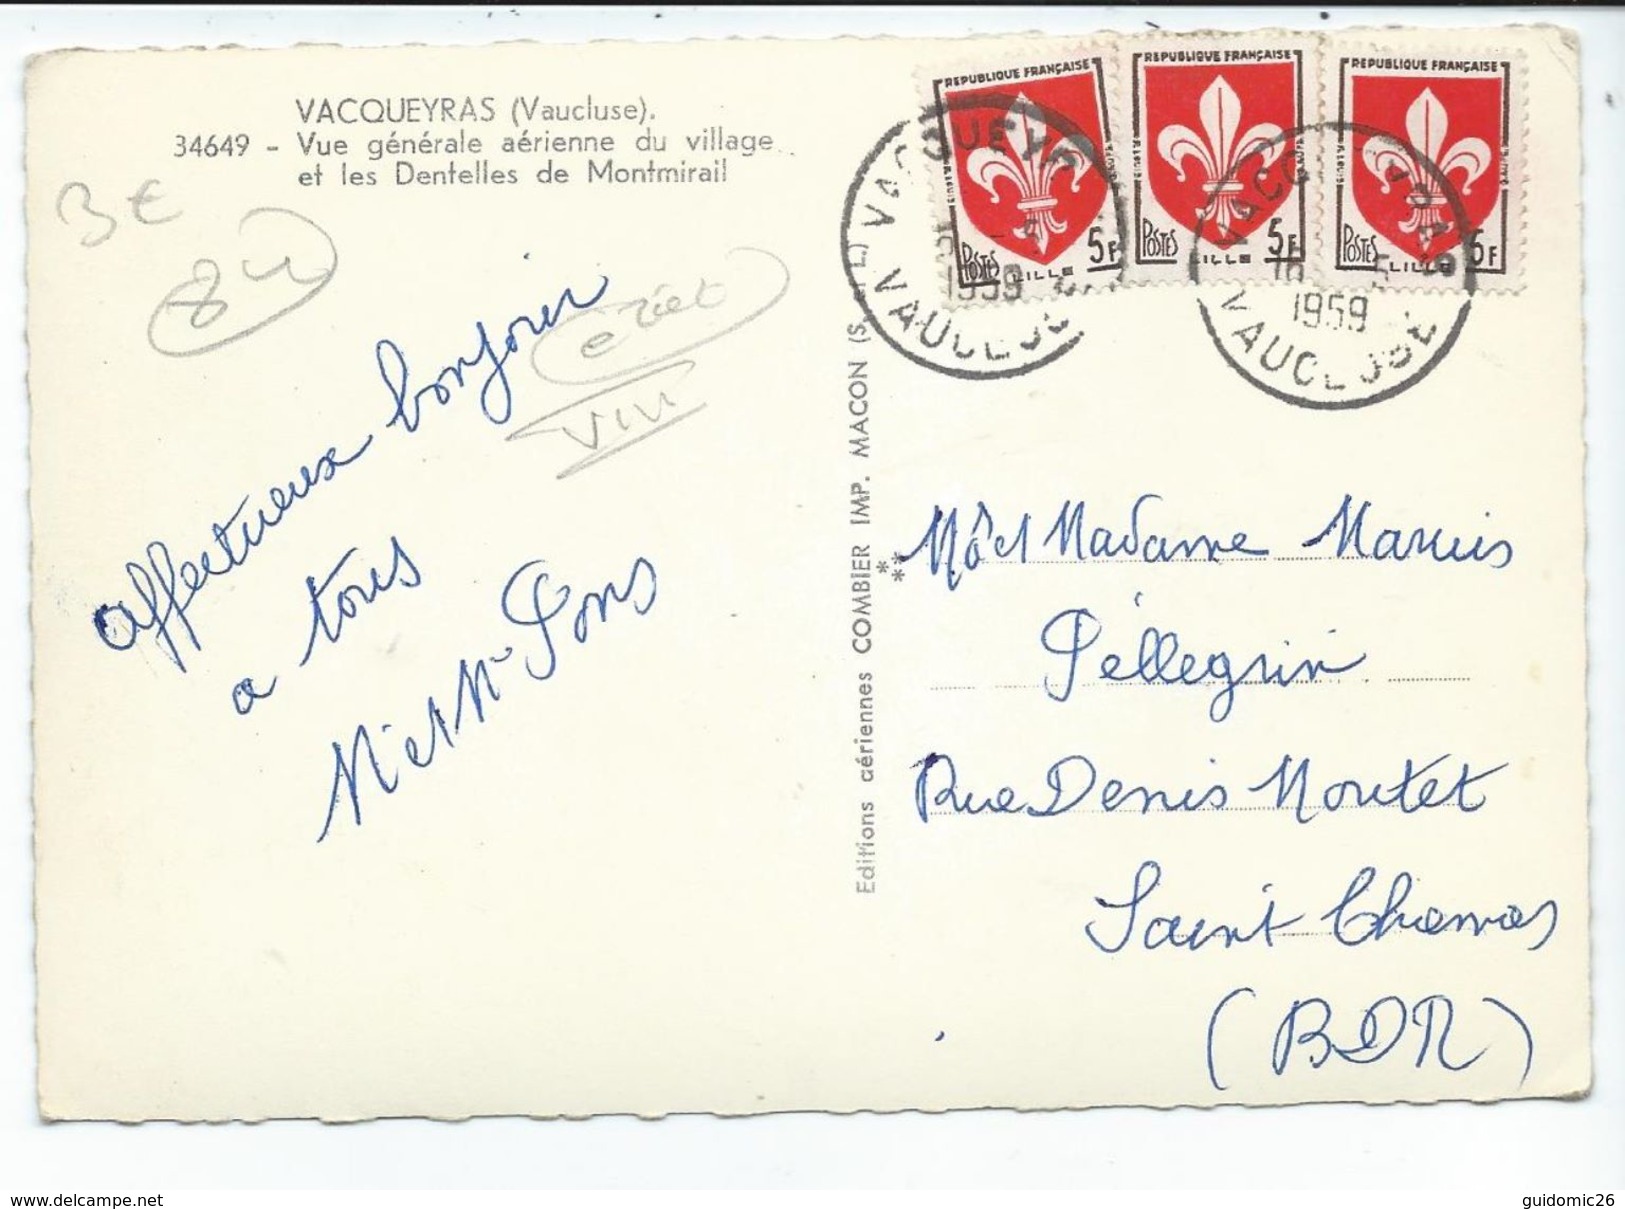 VACQUEYRAS (Vaucluse).
34649 - Vue générale aérienne du village
et les Dentelles de Montmirail
3 €
84
affectueux bonjour
a tous
Mr et Mme Pons
Editions aériennes COMBIER IMP. MACON (S. & L.)
REPUBLIQUE FRANÇAISE
POSTES
LILLE
5F
REPUBLIQUE FRANÇAISE
POSTES
LILLE
5F
REPUBLIQUE FRANÇAISE
POSTES
LILLE
5F
VACQUEYRAS
1959
VAUCLUSE
VACQUEYRAS
1959
VAUCLUSE
Mr et Madame Marius
Pellegrin
Rue Denis Moutet
Saint Chamas
(BDR)
www.delcampe.net
guidomic26